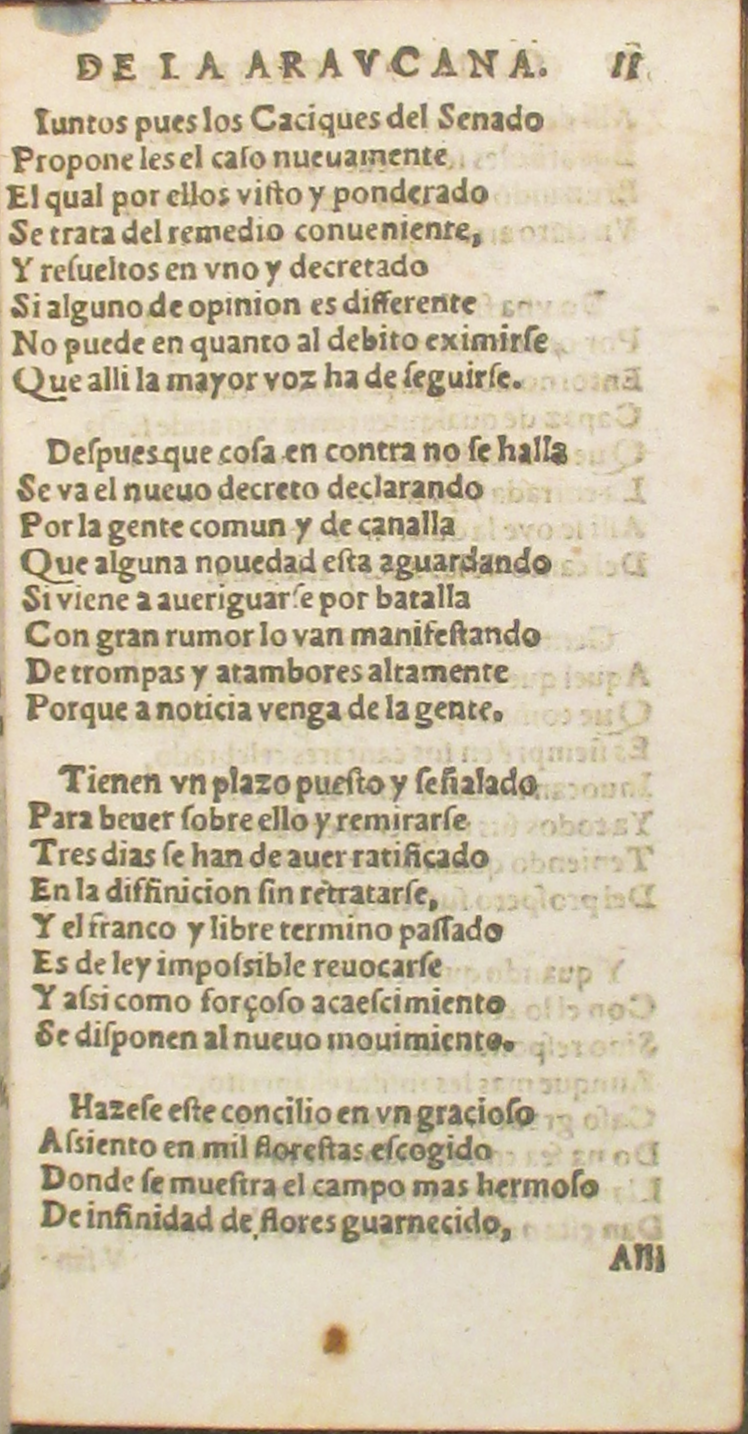 DE LA ARAVCANA. 11
Iuntos pues los Caciques del Senado
Propone les el caſo nueuamente
El qual por ellos viſto y ponderado
Se trata del remedio conueniente,
Y reſueltos en vno y decretado
Si alguno de opinion es differente
No puede en quanto al debito eximirſe
Que alli la mayor voz ha de ſeguirſe.
Deſpues que coſa en contra no ſe halla
Se va el nueuo decreto declarando
Por la gente comun y de canalla
Que alguna nouedad eſta aguardando
Si viene a aueriguarſe por batalla
Con gran rumor lo van manifeſtando
De trompas y atambores altamente
Porque a noticia venga de la gente.
Tienen vn plazo pueſto y ſeñalado
Para beuer ſobre ello y remirarſe
Tres dias ſe han de auer ratificado
En la diffinicion ſin retratarſe,
Y el franco y libre termino paſſado
Es de ley impoſsible reuocarſe
Y aſsi como forçoſo acaeſcimiento
Se diſponen al nueuo mouimiento.
Hazeſe eſte concilio en vn gracioſo
Aſsiento en mil floreſtas eſcogido
Donde ſe mueſtra el campo mas hermoſo
De infinidad de flores guarnecido,
Alli